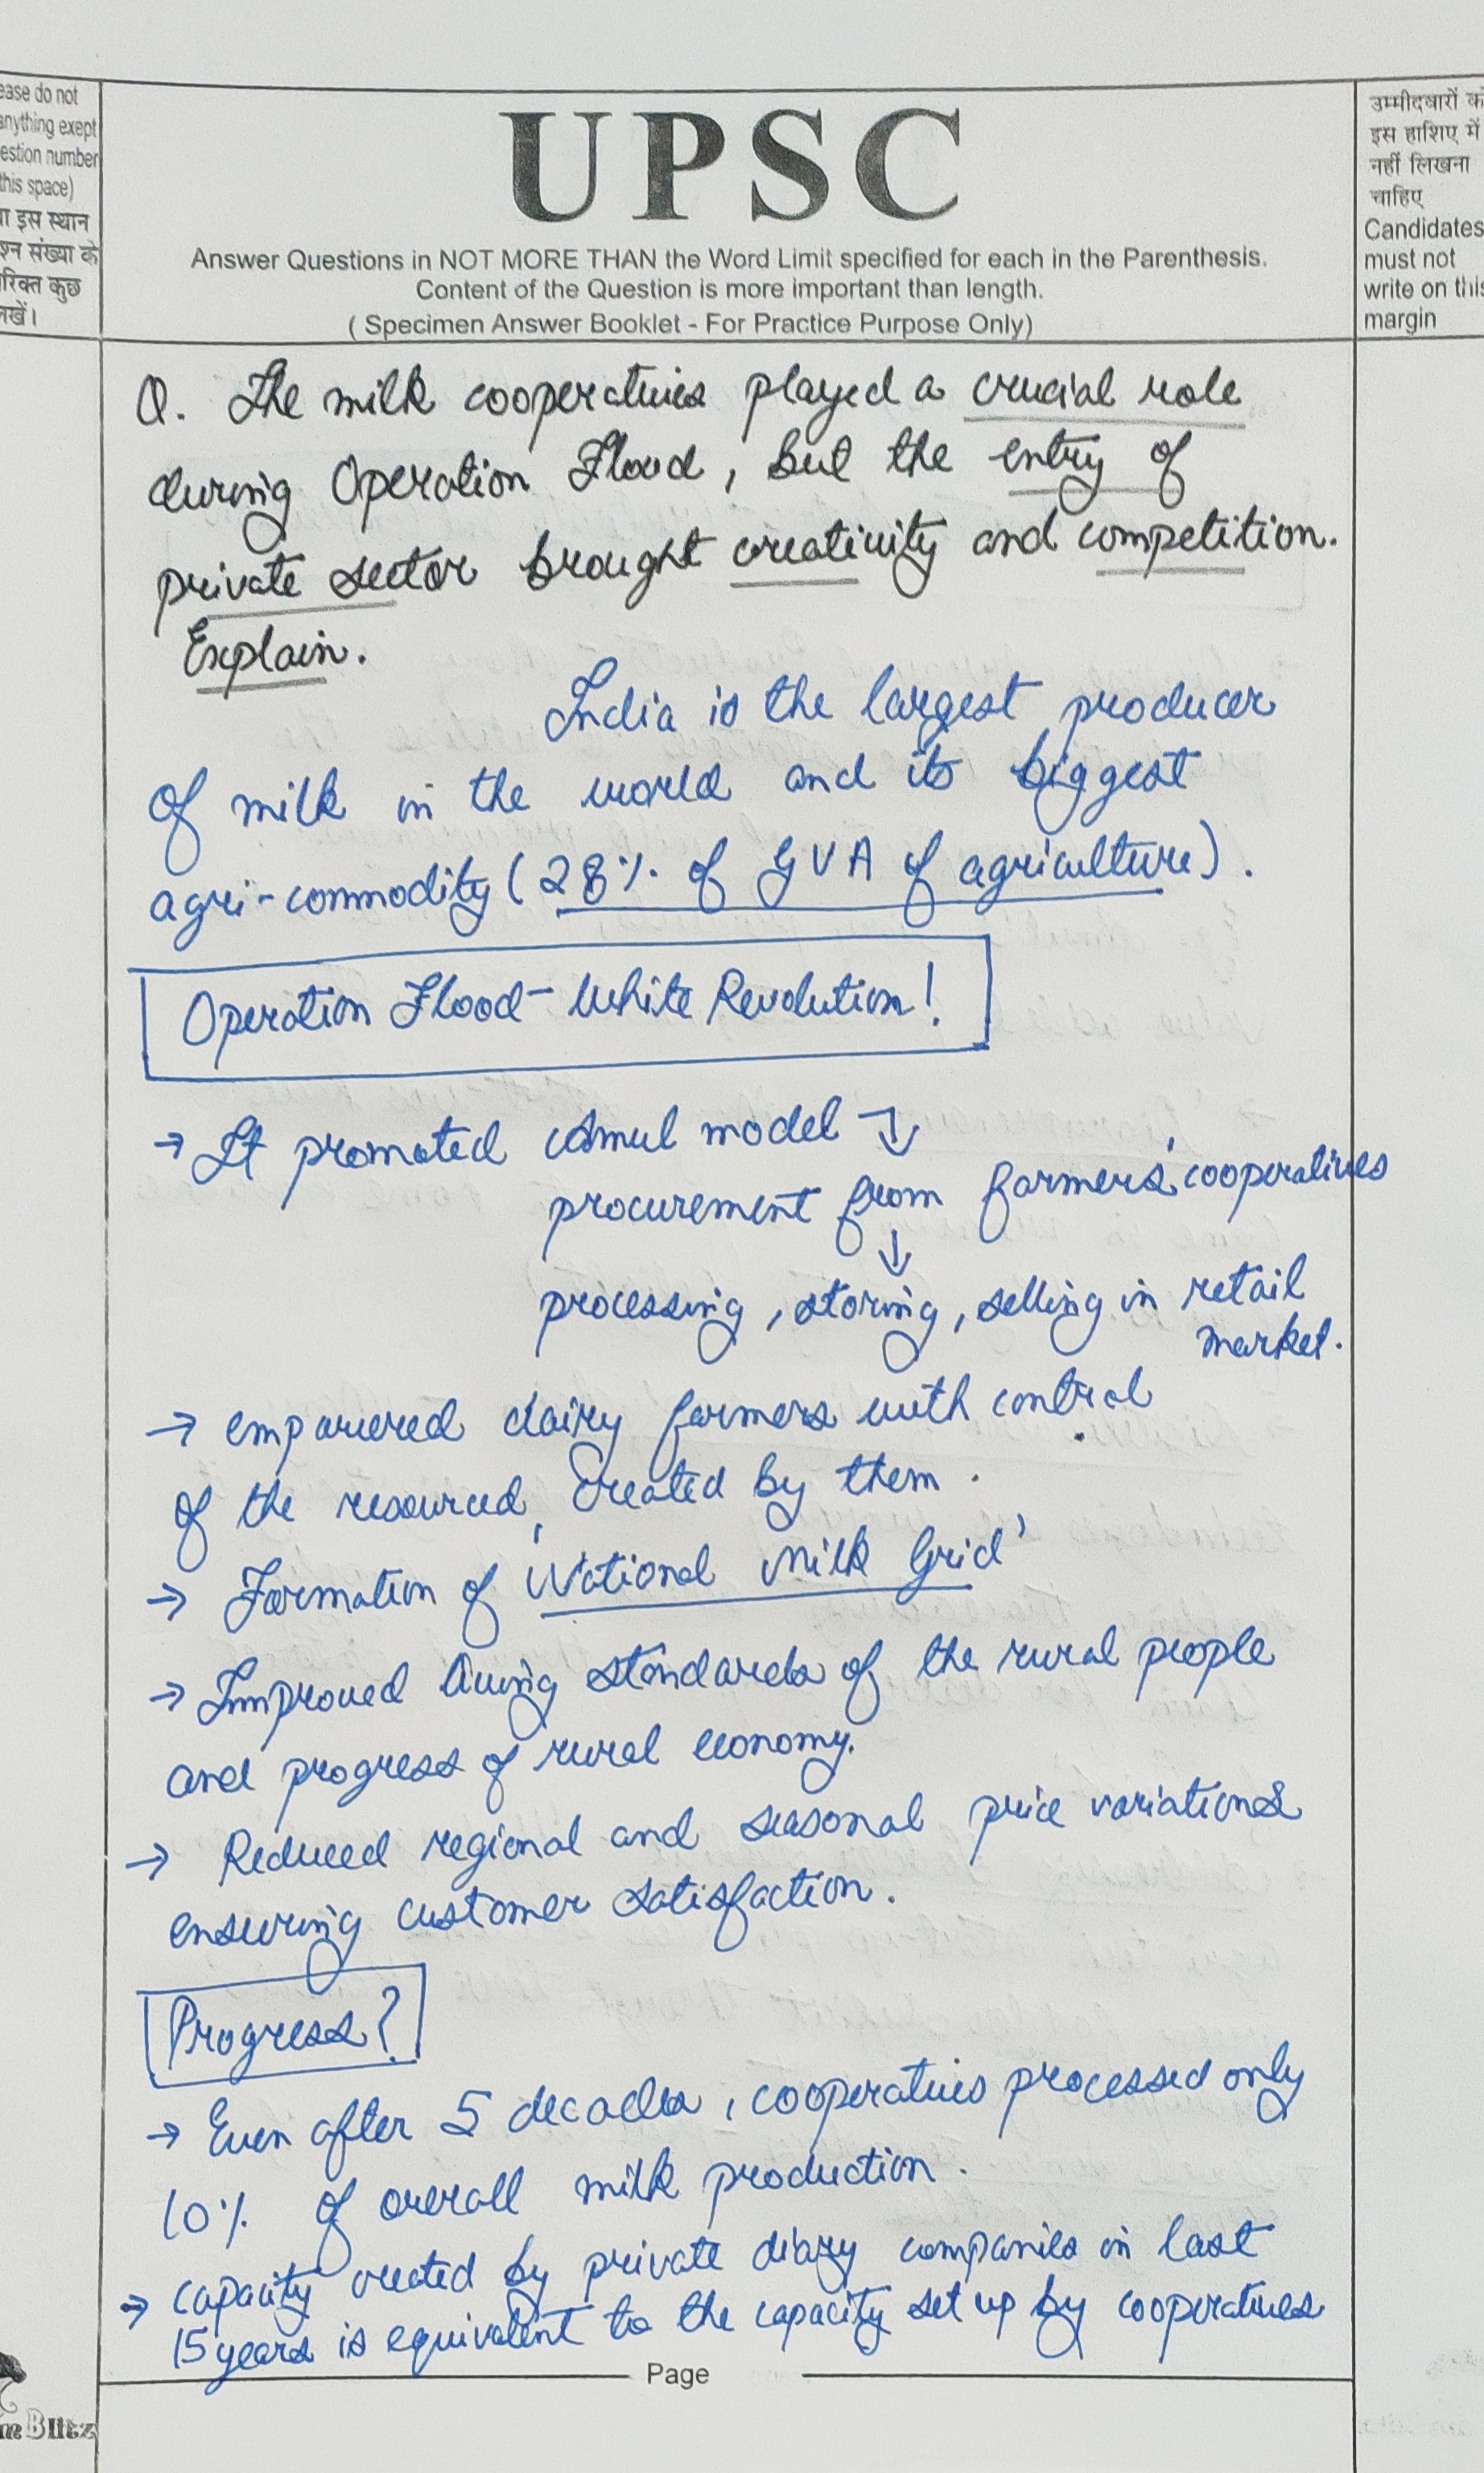 ease do not
anything exept
estion number
this space)
ा इस स्थान
श्न संख्या के
रिक्त कुछ
लखें।
UPSC
Answer Questions in NOT MORE THAN the Word Limit specified for each in the Parenthesis.
Content of the Question is more important than length.
( Specimen Answer Booklet - For Practice Purpose Only)
उम्मीदवारों को
इस हाशिए में
नहीं लिखना
चाहिए
Candidates
must not
write on this
margin
Q. The milk cooperatives played a crucial role
during Operation Flood, but the entry of
private sector brought creativity and competition.
Explain.
India is the largest producer
of milk in the world and its biggest
agri-commodity (28% of GVA of agriculture).
Operation Flood - White Revolution!
→ It promoted Amul model ↴
procurement from farmers' cooperatives
↓
processing, storing, selling in retail
market.
→ empowered dairy farmers with control
of the resourced created by them.
→ Formation of 'National Milk Grid'
→ Improved living standards of the rural people
and progress of rural economy.
→ Reduced regional and seasonal price variations
ensuring customer satisfaction.
Progress?
→ Even after 5 decades, cooperatives processed only
10% of overall milk production.
→ capacity created by private diary companies in last
15 years is equivalent to the capacity set up by cooperatives
Page
Blitz